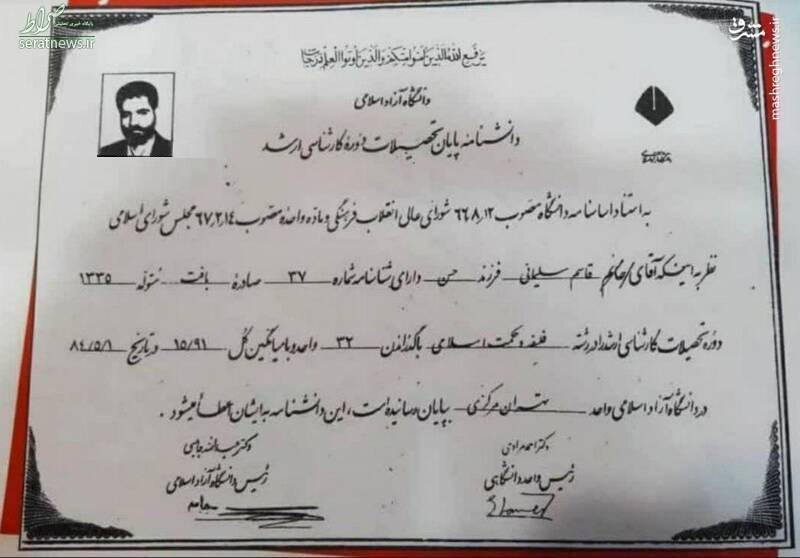 صراط
پایگاه خبری تحلیلی
seratnews.ir
مشرق
mashreghnews.ir
یرفع الله الذین آمنوا منکم والذین اوتوا العلم درجات
دانشگاه آزاد اسلامی
دانشنامه پایان تحصیلات دوره کارشناسی ارشد
به استناد اساسنامه دانشگاه مصوب ۶۶٫۸٫۱۲ شورای عالی انقلاب فرهنگی و ماده واحده مصوب ۶۷٫۲٫۱۴ مجلس شورای اسلامی
نظر به اینکه آقای/خانم قاسم سلیمانی فرزند حسن دارای شناسنامه شماره ۳۷ صادره بافت متولد ۱۳۳۵
دوره تحصیلات کارشناسی ارشد را در رشته فلسفه و حکمت اسلامی با گذراندن ۳۲ واحد و با میانگین کل ۱۵/۹۱ در تاریخ ۸۴/۵/۱
در دانشگاه آزاد اسلامی واحد تهران مرکزی بپایان رسانیده است، این دانشنامه به ایشان اعطا میشود.
دکتر احمد مرادی
رئیس واحد دانشگاهی
دکتر عبدالله جاسبی
رئیس دانشگاه آزاد اسلامی